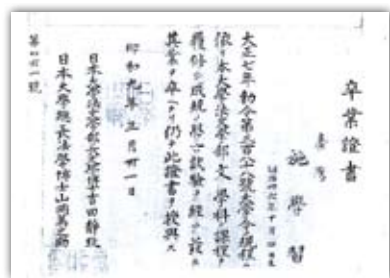 卒業證書
臺灣
施學習
大正七年勅令第三百八十八號大學令ノ規程ニ
依リ本大學法文學部文學科ノ課程ヲ
履修シ成規ノ修了試験ヲ經テ茲ニ
其業ヲ卒ヘタリ仍テ此證書ヲ授與ス
昭和九年三月卅一日
日本大學法文學部長文學博士吉田靜致
日本大學總長法學博士山岡萬之助